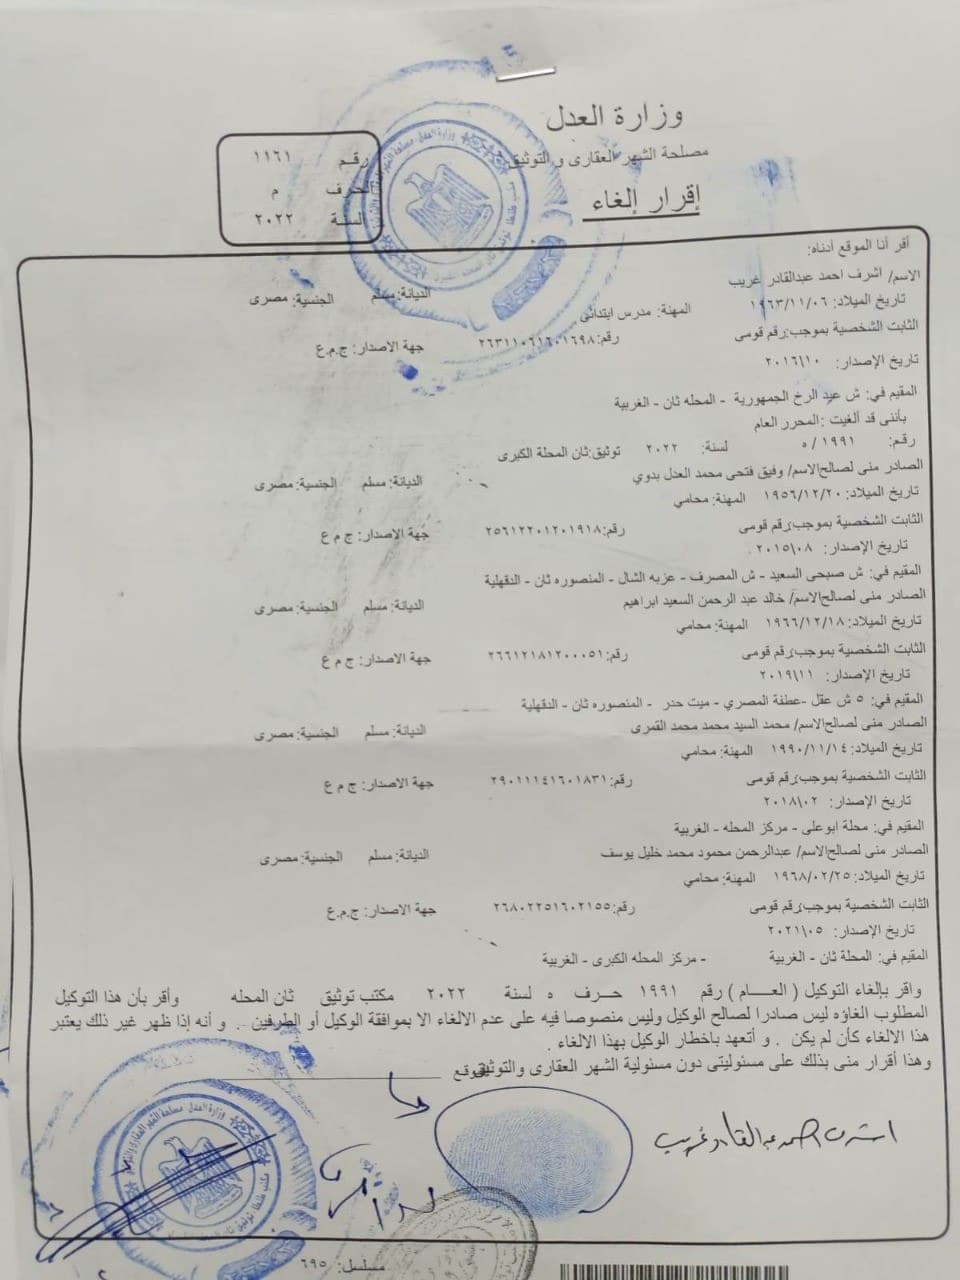 وزارة العدل
مصلحة الشهر العقارى و التوثيق
إقرار إلغاء
رقم ١١٦١
الحرف م
السنة ٢٠٢٢
أقر أنا الموقع أدناه:
الاسم/ اشرف احمد عبدالقادر غريب الديانة: مسلم الجنسية: مصرى
تاريخ الميلاد: ١٩٦٣/١١/٠٦ المهنة: مدرس ابتدائى
الثابت الشخصية بموجب:رقم قومى رقم:٢٦٣١١٠٦١٦٠١٦٩٨ جهة الاصدار: ج.م.ع
تاريخ الإصدار: ٢٠١٦\١٠
المقيم في: ش عيد الرخ الجمهورية - المحله ثان - الغربية
بأننى قد ألغيت :المحرر العام
رقم: ١٩٩١ /٥ لسنة: ٢٠٢٢ توثيق:ثان المحلة الكبرى
الصادر منى لصالح الاسم/ وفيق فتحى محمد العدل بدوي الديانة: مسلم الجنسية: مصرى
تاريخ الميلاد: ١٩٥٦/١٢/٢٠ المهنة: محامي
الثابت الشخصية بموجب:رقم قومى رقم:٢٥٦١٢٢٠١٢٠١٩١٨ جهة الاصدار: ج م ع
تاريخ الإصدار: ٢٠١٥\٠٨
المقيم في: ش صبحى السعيد - ش المصرف - عزبه الشال - المنصوره ثان - الدقهلية
الصادر منى لصالح الاسم/ خالد عبد الرحمن السعيد ابراهيم الديانة: مسلم الجنسية: مصرى
تاريخ الميلاد: ١٩٦٦/١٢/١٨ المهنة: محامي
الثابت الشخصية بموجب:رقم قومى رقم:٢٦٦١٢١٨١٢٠٠٠٥١ جهة الاصدار: ج م ع
تاريخ الإصدار: ٢٠١٩\١١
المقيم في: ٥ ش عقل -عطفة المصري - ميت حدر - المنصوره ثان - الدقهلية
الصادر منى لصالح الاسم/ محمد السيد محمد محمد القمرى الديانة: مسلم الجنسية: مصرى
تاريخ الميلاد: ١٩٩٠/١١/١٤ المهنة: محامي
الثابت الشخصية بموجب:رقم قومى رقم:٢٩٠١١١٤١٦٠١٨٣١ جهة الاصدار: ج م ع
تاريخ الإصدار: ٢٠١٨\٠٢
المقيم في: محلة ابوعلى - مركز المحله - الغربية
الصادر منى لصالح الاسم/ عبدالرحمن محمود محمد خليل يوسف الديانة: مسلم الجنسية: مصرى
تاريخ الميلاد: ١٩٦٨/٠٢/٢٥ المهنة: محامي
الثابت الشخصية بموجب:رقم قومى رقم:٢٦٨٠٢٢٥١٦٠٢١٥٥ جهة الاصدار: ج.م.ع
تاريخ الإصدار: ٢٠٢١\٠٥
المقيم في: المحلة ثان - الغربية - مركز المحله الكبرى - الغربية
واقر بإلغاء التوكيل ( العـــام ) رقم ١٩٩١ حـــرف ٥ لسنة ٢٠٢٢ مكتب توثيق ثان المحله وأقر بأن هذا التوكيل
المطلوب الغاؤه ليس صادرا لصالح الوكيل وليس منصوصا فيه على عدم الالغاء الا بموافقة الوكيل أو الطرفين . و أنه إذا ظهر غير ذلك يعتبر
هذا الالغاء كأن لم يكن . و أتعهد باخطار الوكيل بهذا الالغاء .
وهذا أقرار منى بذلك على مسئوليتى دون مسئولية الشهر العقارى والتوثيق
توقيع
اشرف احمد عبد القادر غريب
مسلسل: ٦٩٥